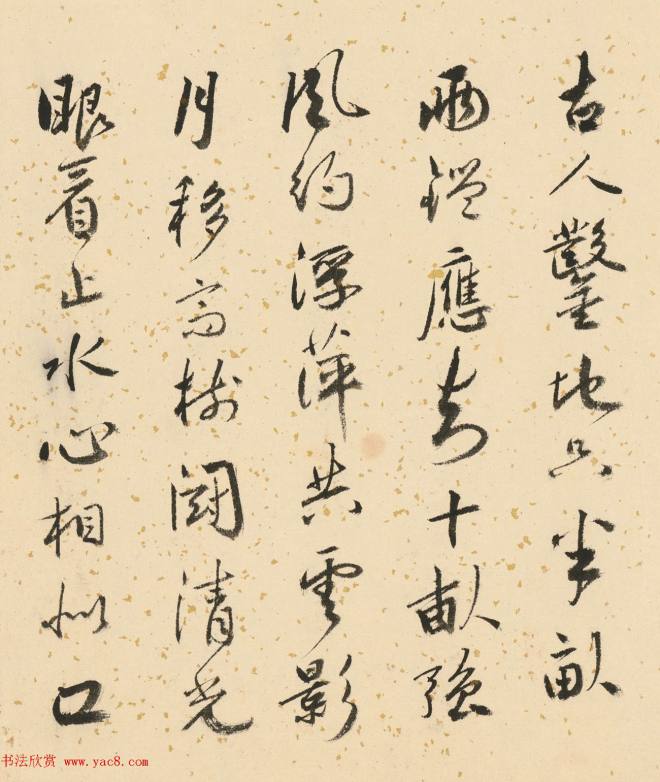 古人鑿地只半畝
兩鑑應知十畝強
風約浮萍共雲影
月移高樹閟清光
眼看止水心相似口
书法欣赏 www.yac8.com